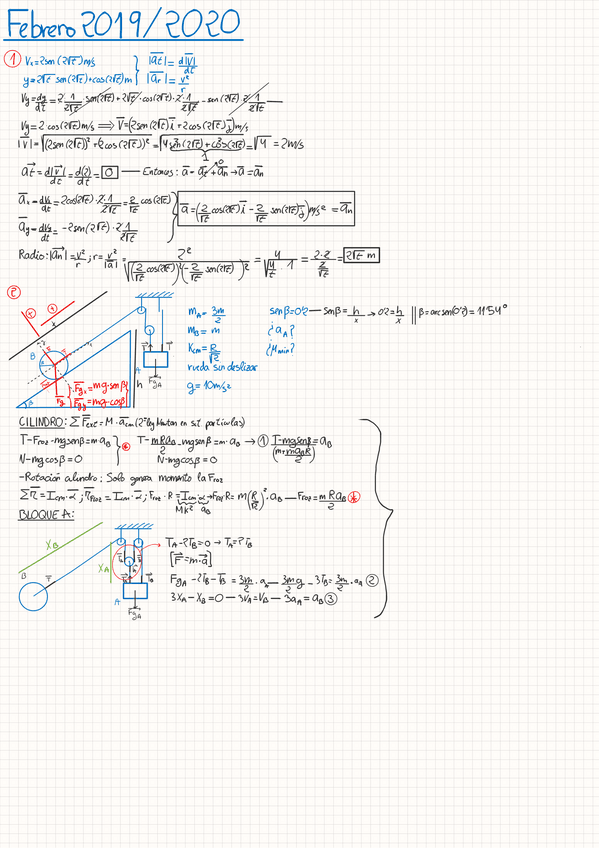 Febrero 2019/2020
① Vx = 2sen(2√t) m/s
y = 2√t sen(2√t) + cos(2√t) m
|at| = d|v|/dt
|ar| = v²/r
Vy = dy/dt = 2·1/2√t sen(2√t) + 2√t·cos(2√t)·2·1/2√t - sen(2√t)·2·1/2√t
Vy = 2 cos(2√t) m/s ⟹ V = (2sen(2√t) i + 2cos(2√t) j) m/s
|V| = √(2sen(2√t))² + (2cos(2√t))² = √4 = 2 m/s
1
at = d|v|/dt = d(2)/dt = 0 — Entonces: a = at + an → a = an
ax = dVx/dt = 2cos(2√t)·2·1/2√t = 2/√t cos(2√t)
ay = dVy/dt = -2sen(2√t)·2·1/2√t
a = (2/√t cos(2√t) i - 2/√t sen(2√t) j) m/s² = an
Radio: |an| = v²/r ; r = v²/|a| = 2²/√(2/√t cos(2√t))²(-2/√t sen(2√t))² = 4/√4/t · 1 = 2·2/2/√t = 2√t m
②
mA = 3m/2
mB = m
Kcm = R/√2
rueda sin deslizar
g = 10m/s²
senβ = 0'2 — senβ = h/x → 0'2 = h/x || β = arcsen(0'2) = 11'54°
¿aA?
¿μmin?
Fgx = mg·senβ
Fgy = mg·cosβ
CILINDRO: Σ Fext = M·acm (2ª ley Newton en sist partículas)
T - Froz - mgsenβ = m aB
N - mgcosβ = 0
T - mRaB/2 - mgsenβ = m·aB → ① T - mgsenβ/(m + maBR/2) = aB
N - mgcosβ = 0
- Rotación cilindro: Solo genera momento la Froz
Στ = Icm·α ; τFroz = Icm·α ; Froz·R = Icm·α → Froz·R = m(R/√2)²·aB — Froz = mRaB/2
MK² aB
BLOQUE A:
TA - 2TB = 0 → TA = 2TB
[F = m·a]
FgA - 2TB - TB = 3m/2·aA — 3m/2 g - 3TB = 3m/2·aA ②
3XA - XB = 0 — 3VA = VB — 3aA = aB ③